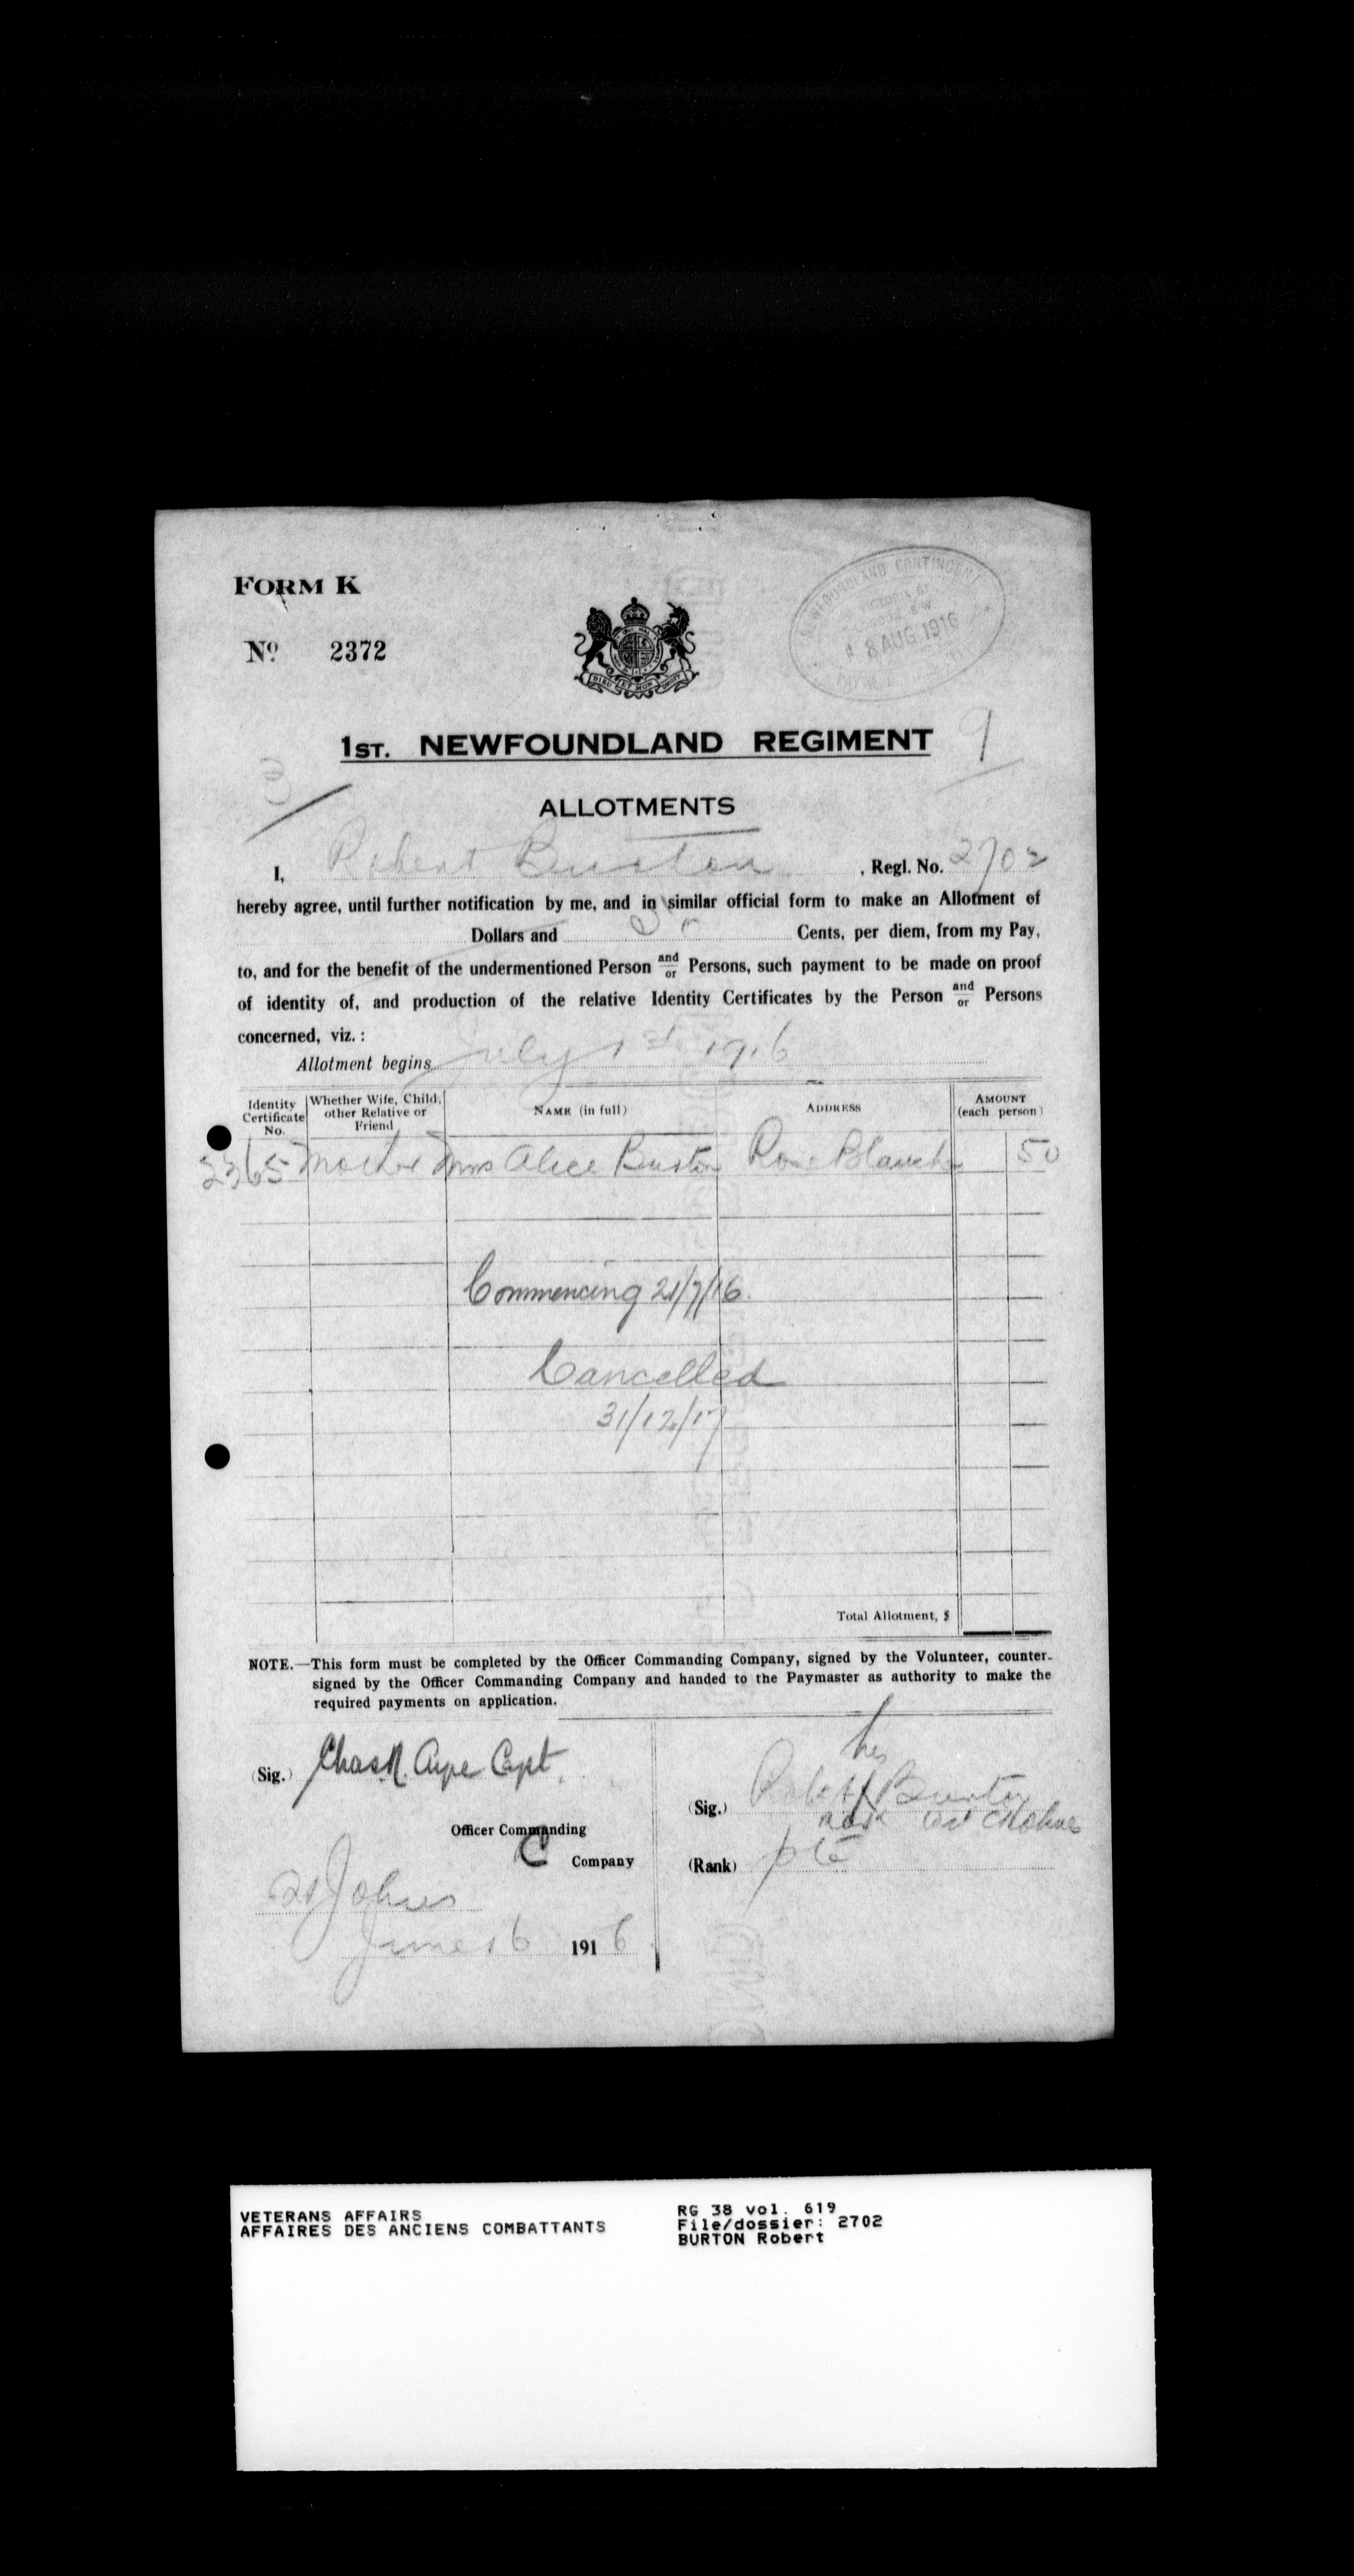 FORM K
NEWFOUNDLAND CONTINGENT
VICTORIA ST
8 AUG 1916
No 2372
DIEU ET MON DROIT
1ST. NEWFOUNDLAND REGIMENT
9
3
ALLOTMENTS
I, Robert Burton, Regl. No. 2702
hereby agree, until further notification by me, and in similar official form to make an Allotment of
Dollars and Cents, per diem, from my Pay,
to, and for the benefit of the undermentioned Person and/or Persons, such payment to be made on proof
of identity of, and production of the relative Identity Certificates by the Person and/or Persons
concerned, viz. :
Allotment begins July 1st 1916
Identity Certificate No. Whether Wife, Child, other Relative or Friend NAME (in full) ADDRESS AMOUNT (each person)
2365 Mother Mrs Alice Burton Rose Blanche 50
Commencing 21/7/16.
Cancelled
31/12/17
Total Allotment, $
NOTE.—This form must be completed by the Officer Commanding Company, signed by the Volunteer, counter-
signed by the Officer Commanding Company and handed to the Paymaster as authority to make the
required payments on application.
(Sig.) Chas R. Ayre Capt.
Officer Commanding
C Company
St Johns
June 16 1916
his
(Sig.) Robert X Burton
mark
(Rank) pte
VETERANS AFFAIRS
AFFAIRES DES ANCIENS COMBATTANTS
RG 38 vol. 619
File/dossier: 2702
BURTON Robert